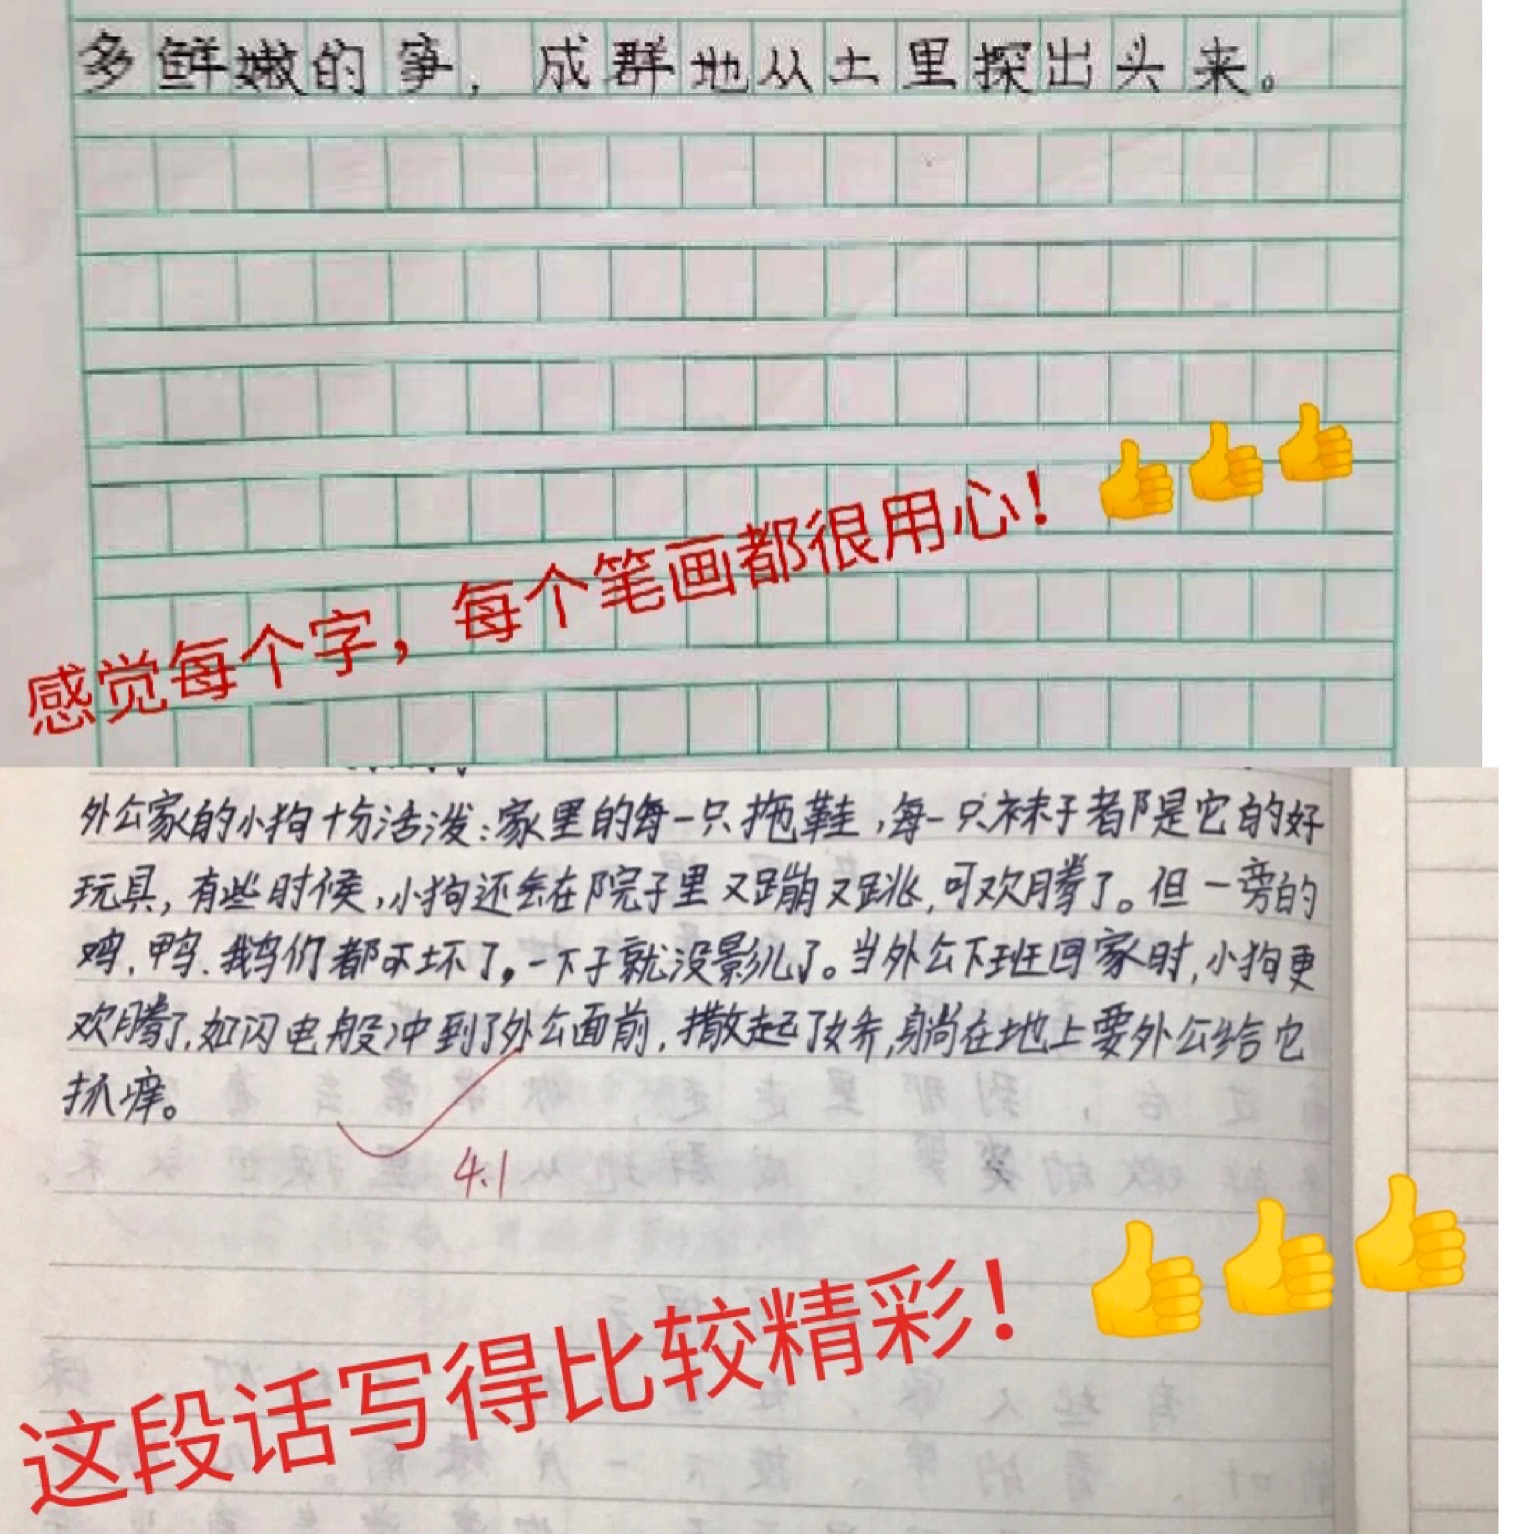 多鲜嫩的笋，成群地从土里探出头来。
感觉每个字，每个笔画都很用心！
外公家的小狗十分活泼：家里的每一只拖鞋，每一只袜子都是它的好
玩具，有些时候，小狗还会在院子里又蹦又跳，可欢腾了。但一旁的
鸡、鸭、鹅们都吓坏了。一下子就没影儿了。当外公下班回家时，小狗更
欢腾了，如闪电般冲到了外公面前，撒起了娇，躺在地上要外公给它
抓痒。
4.1
这段话写得比较精彩！